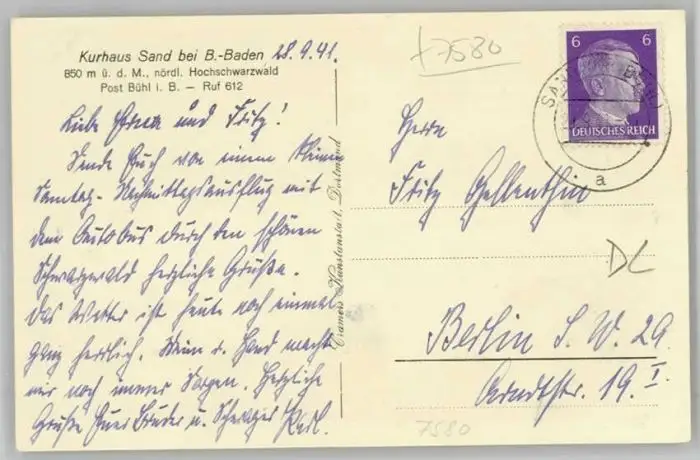 Kurhaus Sand bei B.-Baden
850 m ü. d. M., nördl. Hochschwarzwald
Post Bühl i. B. — Ruf 612
28.9.41.
Liebe Erna und Fritz!
Sende Euch von einem kleinen
Sonntag-Nachmittagsausflug mit
dem Autobus durch den schönen
Schwarzwald herzliche Grüße.
Das Wetter ist heute noch einmal
ganz herrlich. Meine r. Hand macht
mir noch immer Sorgen. Herzliche
Grüße Euer Bruder u. Schwager Karl.
Cramers Kunstanstalt, Dortmund
7580
6 6
DEUTSCHES REICH
SAND
a
Herrn
Fritz Gellenthin
DL
Berlin S. W. 29
Arndtstr. 19 I.
7580